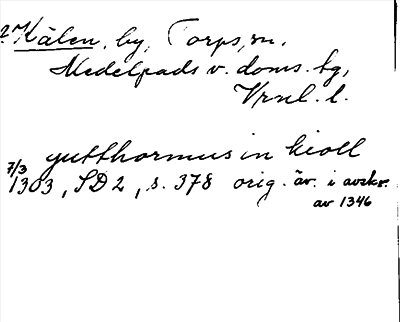 2. Kälen, by, Torps, sn.
Medelpads v. doms. hg,
Vrnl. l.
gutthormus in kioll
7/3 1303, SD 2, s. 378 orig. äv. i avskr.
av 1346